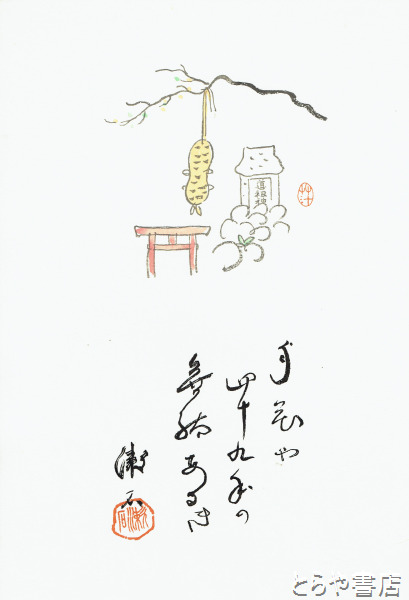 道祖神
月花や
四十九年の
無駄あるき
とらや書店